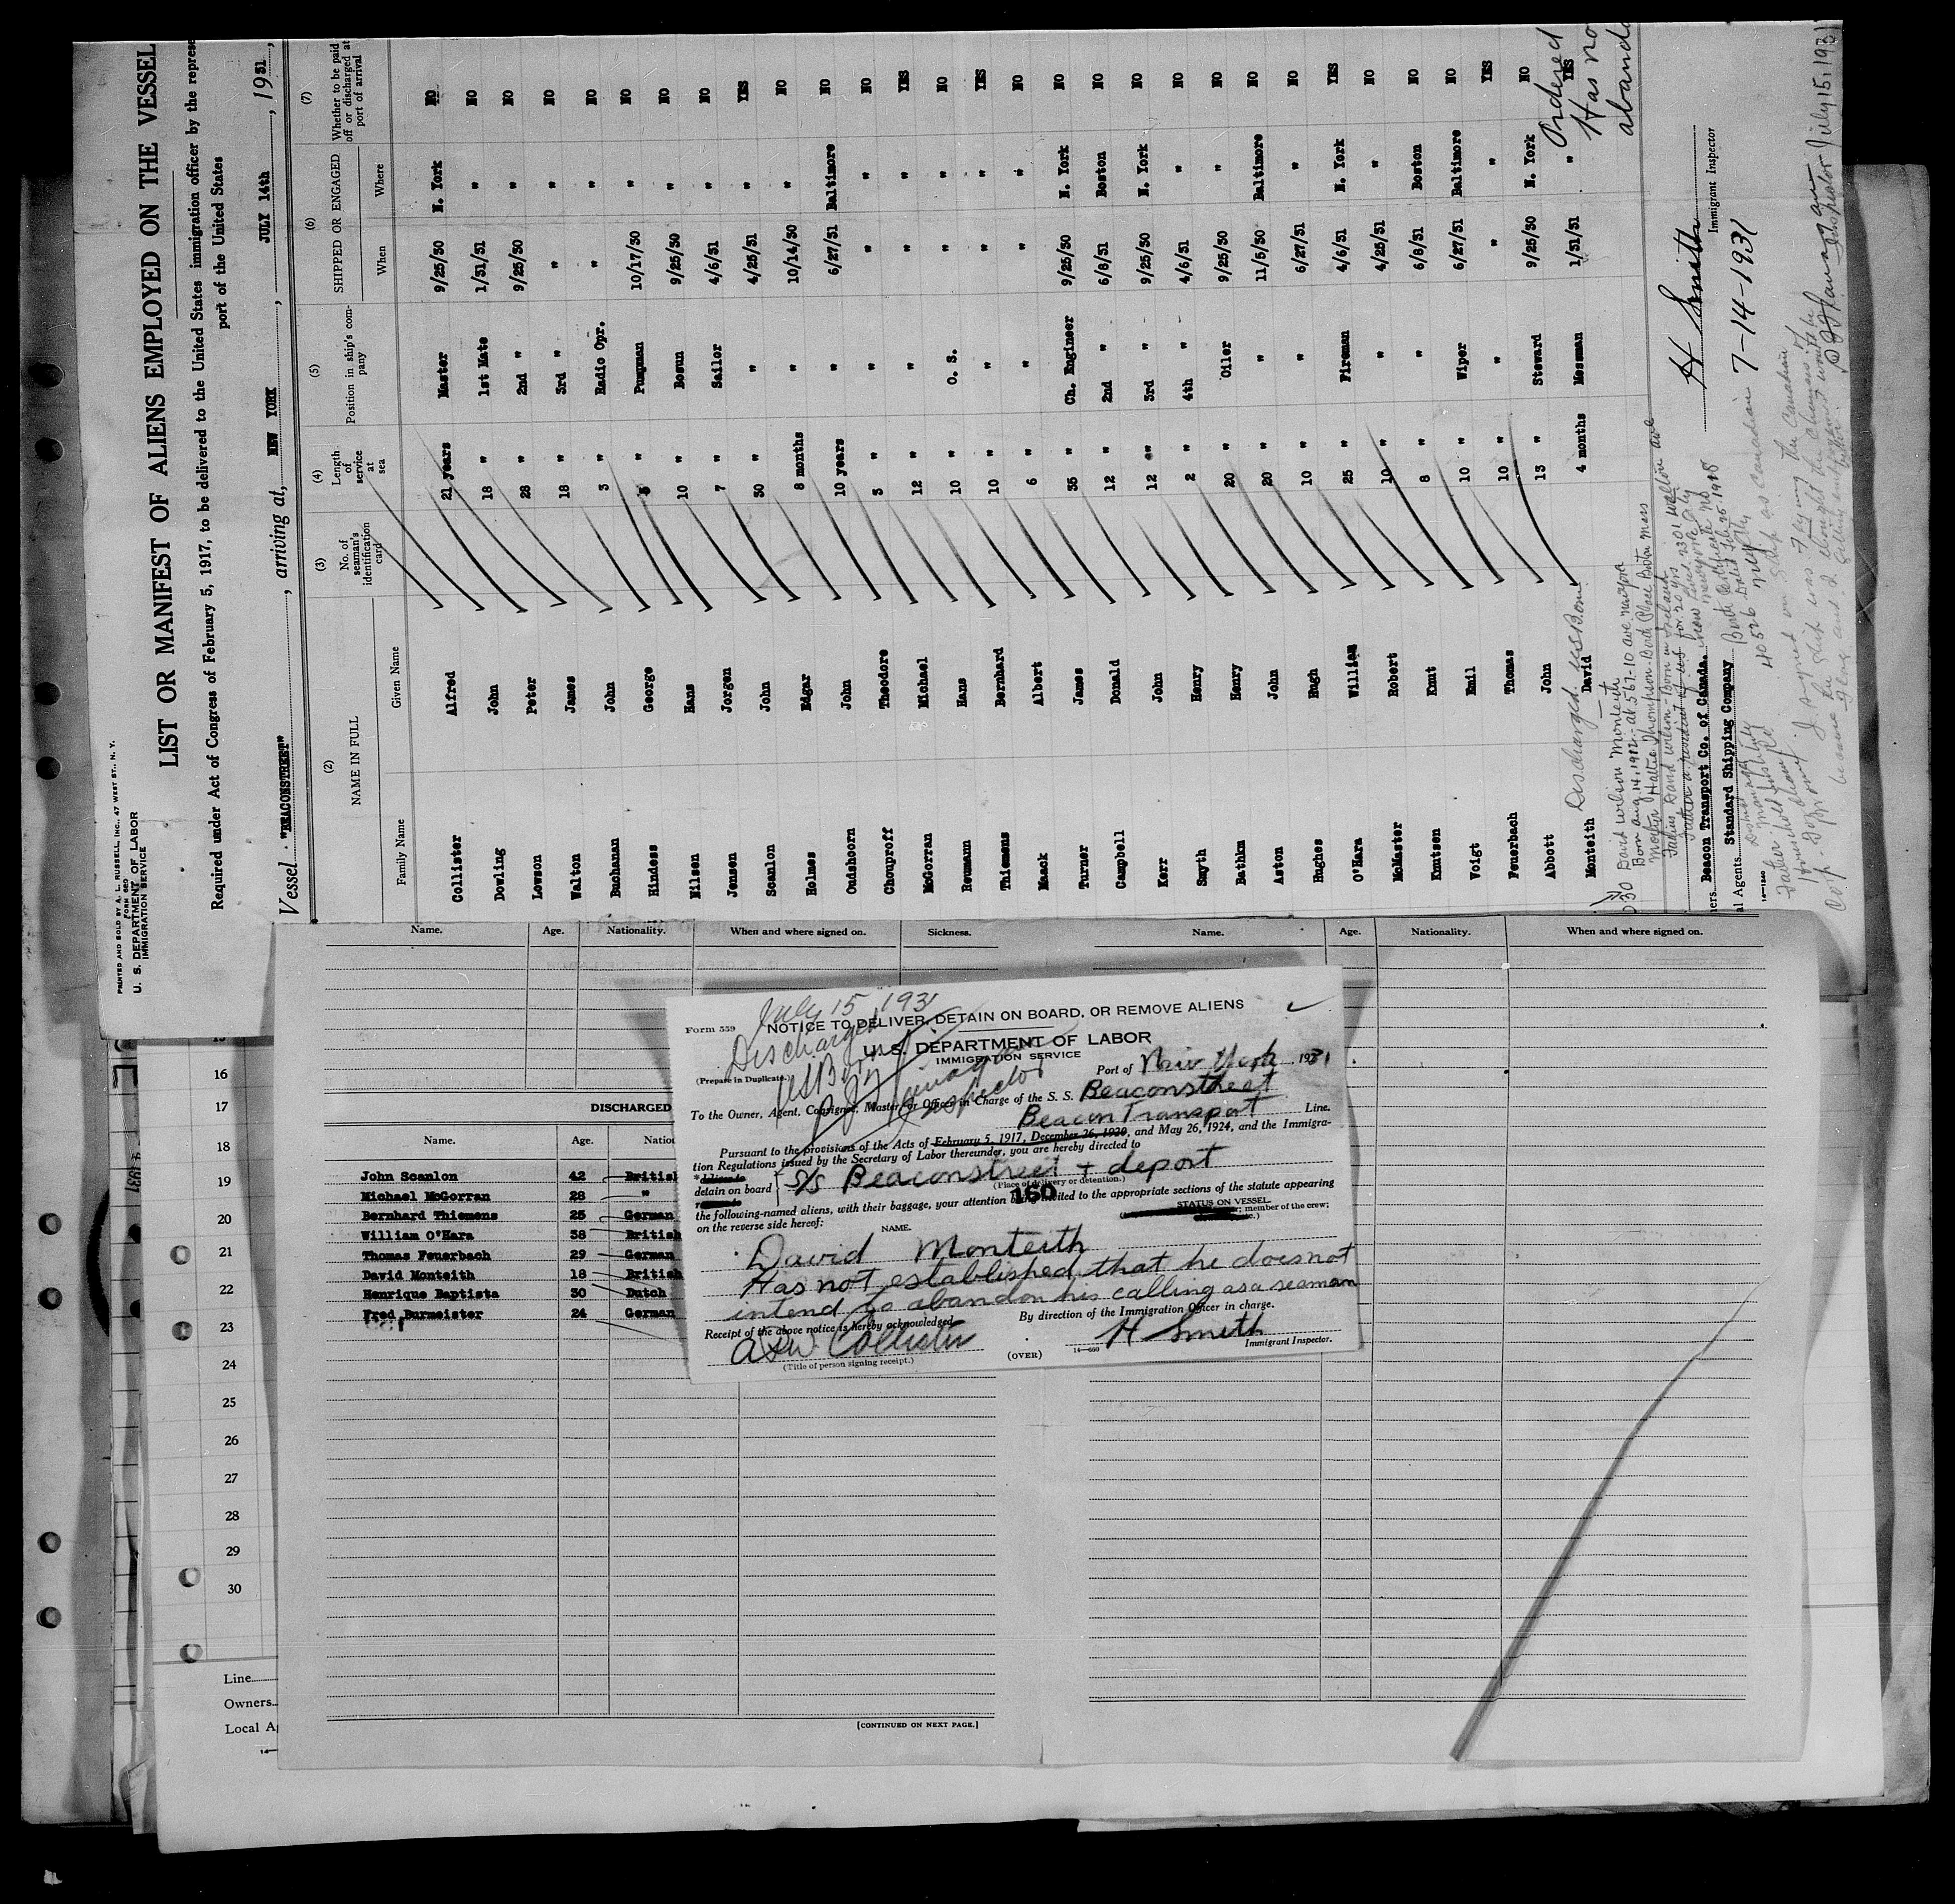 PRINTED AND SOLD BY A. L. RUSSELL, INC., 47 WEST ST., N. Y.
FORM 680
U. S. DEPARTMENT OF LABOR
IMMIGRATION SERVICE
LIST OR MANIFEST OF ALIENS EMPLOYED ON THE VESSEL
Required under Act of Congress of February 5, 1917, to be delivered to the United States immigration officer by the represe
port of the United States
Vessel "BEACONSTREET", arriving at, NEW YORK, JULY 14th, 1931,
(2) (3) (4) (5) (6) (7)
NAME IN FULL No. of seaman's identification card Length of service at sea Position in ship's company SHIPPED OR ENGAGED Whether to be paid off or discharged at port of arrival
Family Name Given Name When Where
Collister Alfred 21 years Master 9/25/30 N. York NO
Dowling John 18 " 1st Mate 1/31/31 " NO
Lowson Peter 28 " 2nd " 9/25/30 " NO
Walton James 18 " 3rd " " " NO
Buchanan John 3 " Radio Opr. " " NO
Hindess George 5 " Pumpman 10/17/30 " NO
Nilsen Hans 10 " Bosun 9/25/30 " NO
Jensen Jorgen 7 " Sailor 4/6/31 " NO
Scanlon John 30 " " 4/25/31 " YES
Holmes Edgar 8 months " 10/14/30 " NO
Oudshoorn John 10 years " 6/27/31 Baltimore NO
Chouproff Theodore 3 " " " " NO
McGorran Michael 12 " " " " YES
Reumann Hans 10 " O. S. " " NO
Thiemens Bernhard 10 " " " " YES
Maack Albert 6 " " " " NO
Turner James 35 " Ch. Engineer 9/25/30 N. York NO
Campbell Donald 12 " 2nd " 6/8/31 Boston NO
Kerr John 12 "" 3rd " 9/25/30 N. York NO
Smyth Henry 2 " 4th " 4/6/31 " NO
Bathkm Henry 20 " Oiler 9/25/30 " NO
Aston John 20 " " 11/5/30 Baltimore NO
Hughes Hugh 10 " " 6/27/31 " NO
O'Hara William 25 " Fireman 4/6/31 N. York YES
McMaster Robert 10 " " 4/25/31 " NO
Knutsen Knut 8 " " 6/8/31 Boston NO
Voigt Emil 10 " Wiper 6/27/31 Baltimore NO
Feuerbach Thomas 10 " " " " YES
Abbott John 13 " Steward 9/25/30 N. York NO
Monteith David 4 months Messman 1/31/31 " YES
Discharged. U.S. Born
Ordered
Has no
aband
David Wilson Monteith
Born Aug. 14, 1912 - at 567-10 ave New York
Mother Hattie Thompson - Birth Place Boston Mass
Father David Wilson - Born in Ireland
Father a resident of US for 20 yrs 2301 Walton ave
new york city
Beacon Transport Co. of Canada.
Standard Shipping Company
al Agents.
H Smith
Immigrant Inspector
7-14-1931
I signed on ship as canadian
July 15, 1931
Inspector
Name. Age. Nationality. When and where signed on. Sickness.
Name. Age. Nationality. When and where signed on.
DISCHARGED
Name. Age. Natio
John Scanlon 42 British
Michael McGorran 28 "
Bernhard Thiemens 25 German
William O'Hara 38 British
Thomas Feuerbach 29 German
David Monteith 18 British
Henrique Baptista 30 Dutch
Fred Burmeister 24 German
16
17
18
19
20
21
22
23
24
25
26
27
28
29
30
Line
Owners
Local A
[CONTINUED ON NEXT PAGE.]
July 15, 1931
Discharged
US Born
Inspector
Form 559
NOTICE TO DELIVER, DETAIN ON BOARD, OR REMOVE ALIENS
U. S. DEPARTMENT OF LABOR
IMMIGRATION SERVICE
(Prepare in Duplicate.)
Port of New York 1931.
To the Owner, Agent, Consignee, Master or Officer in Charge of the S. S. Beaconstreet
Beacon Transport Line.
Pursuant to the provisions of the Acts of February 5, 1917, December 26, 1920, and May 26, 1924, and the Immigra-
tion Regulations issued by the Secretary of Labor thereunder, you are hereby directed to
detain on board S/S Beaconstreet + deport
(Place of delivery or detention.)
160
the following-named aliens, with their baggage, your attention being invited to the appropriate sections of the statute appearing
on the reverse side hereof:
NAME.
STATUS ON VESSEL
; member of the crew;
David Monteith
Has not established that he does not
intend to abandon his calling as a seaman
Receipt of the above notice is hereby acknowledged
By direction of the Immigration Officer in charge.
Collister
H Smith
Immigrant Inspector.
(Title of person signing receipt.)
(OVER)
14—660